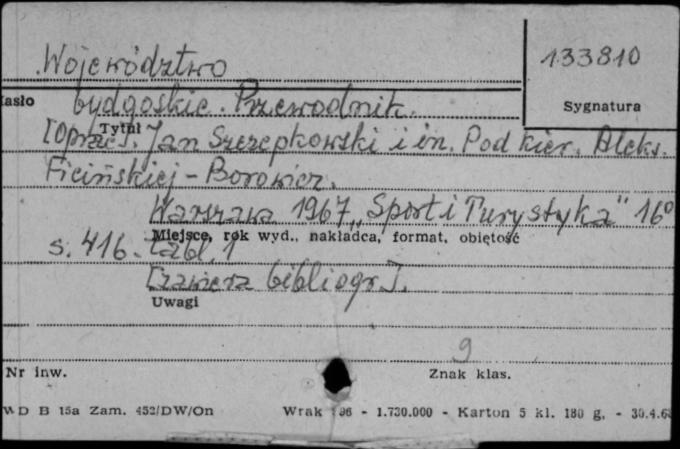 Województwo
133810
Hasło
bydgoskie. Przewodnik.
Sygnatura
Tytuł
[Oprac]. Jan Szczepkowski i in. Pod kier. Aleks.
Ficińskiej-Borowicz.
Warszawa 1967 „Sport i Turystyka" 16°
Miejsce, rok wyd., nakładca, format, objętość
s. 416. tabl. 1
[zawiera bibliogr].
Uwagi
9
Nr inw.
Znak klas.
WD B 15a Zam. 452/DW/On
Wrak 96 - 1.730.000 - Karton 5 kl. 180 g. - 30.4.6